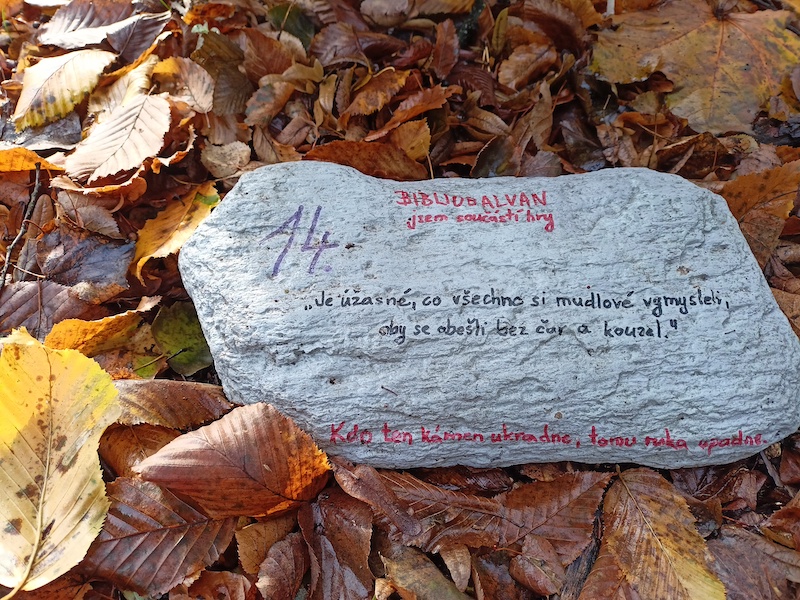 14.
BIBLIOBALVAN
jsem součástí hry
„Je úžasné, co všechno si mudlové vymysleli,
aby se obešli bez čar a kouzel."
Kdo ten kámen ukradne, tomu ruka upadne.